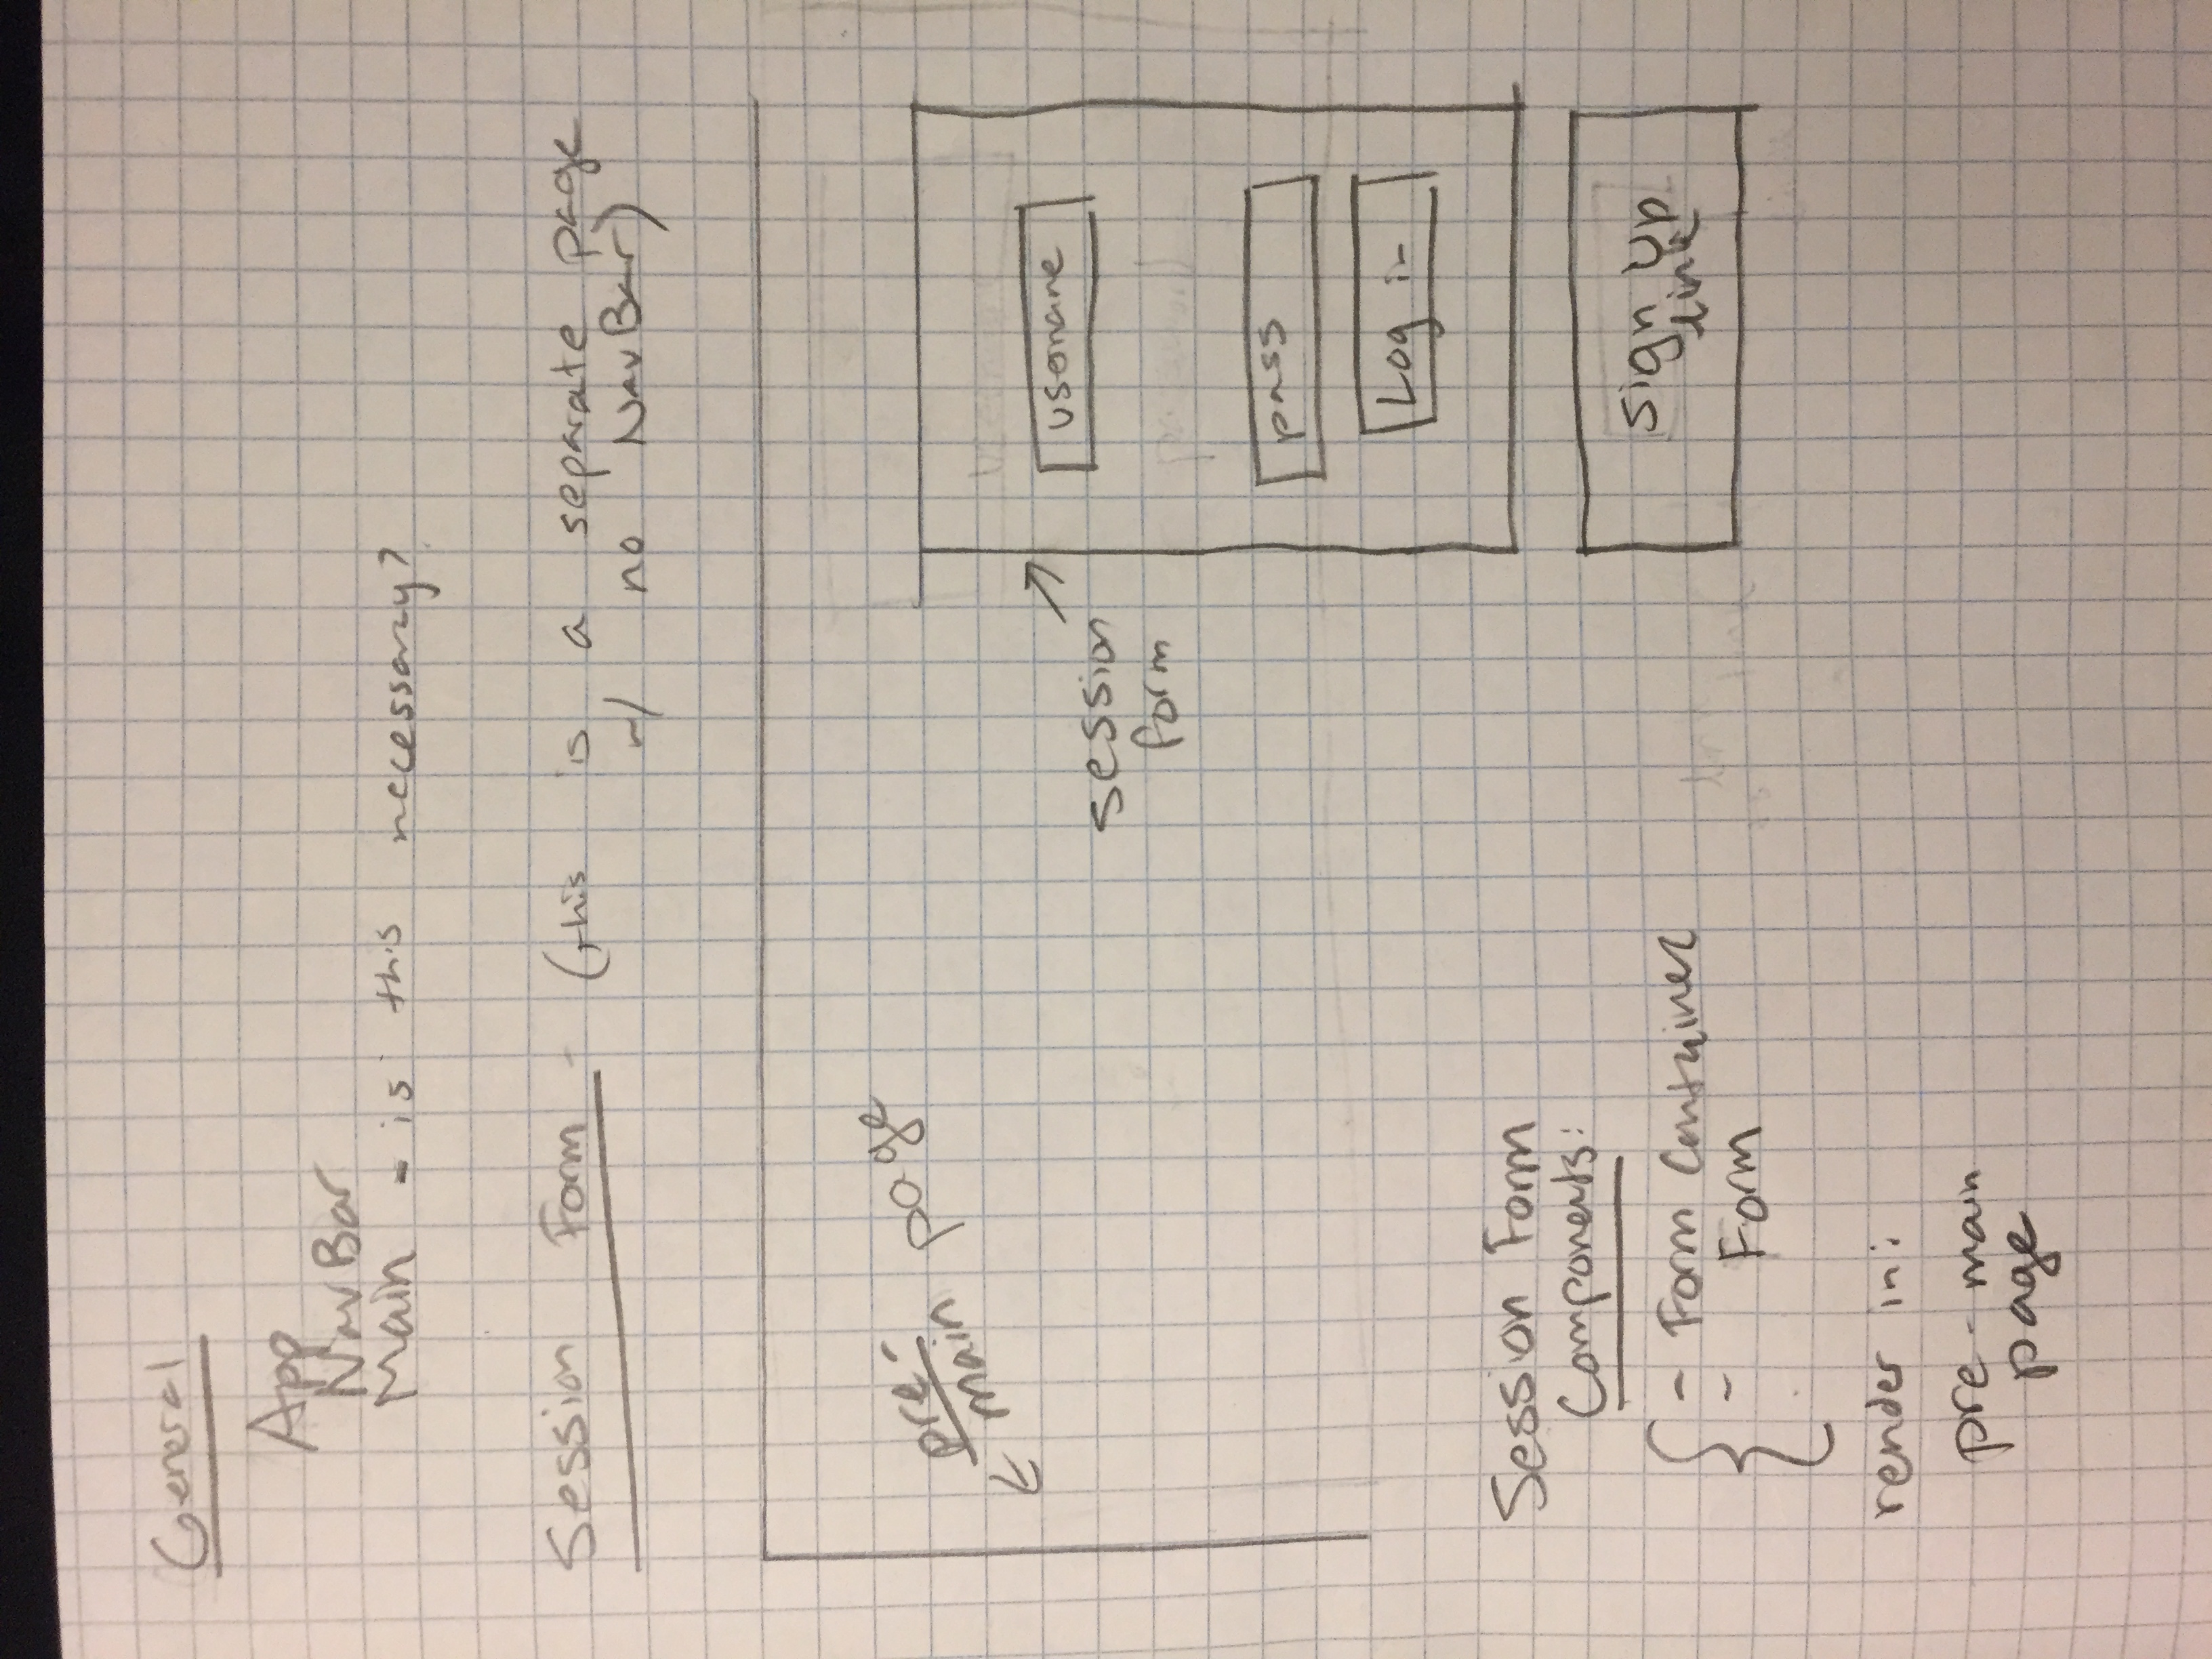 General
App
NavBar
Main - is this necessary?
Session Form - (this is a separate page
w/ no NavBar)
pre-
main page
username
session
form
pass
Log in
Session Form
Components:
- Form Container
- Form
sign up
link
render in:
pre-main
page